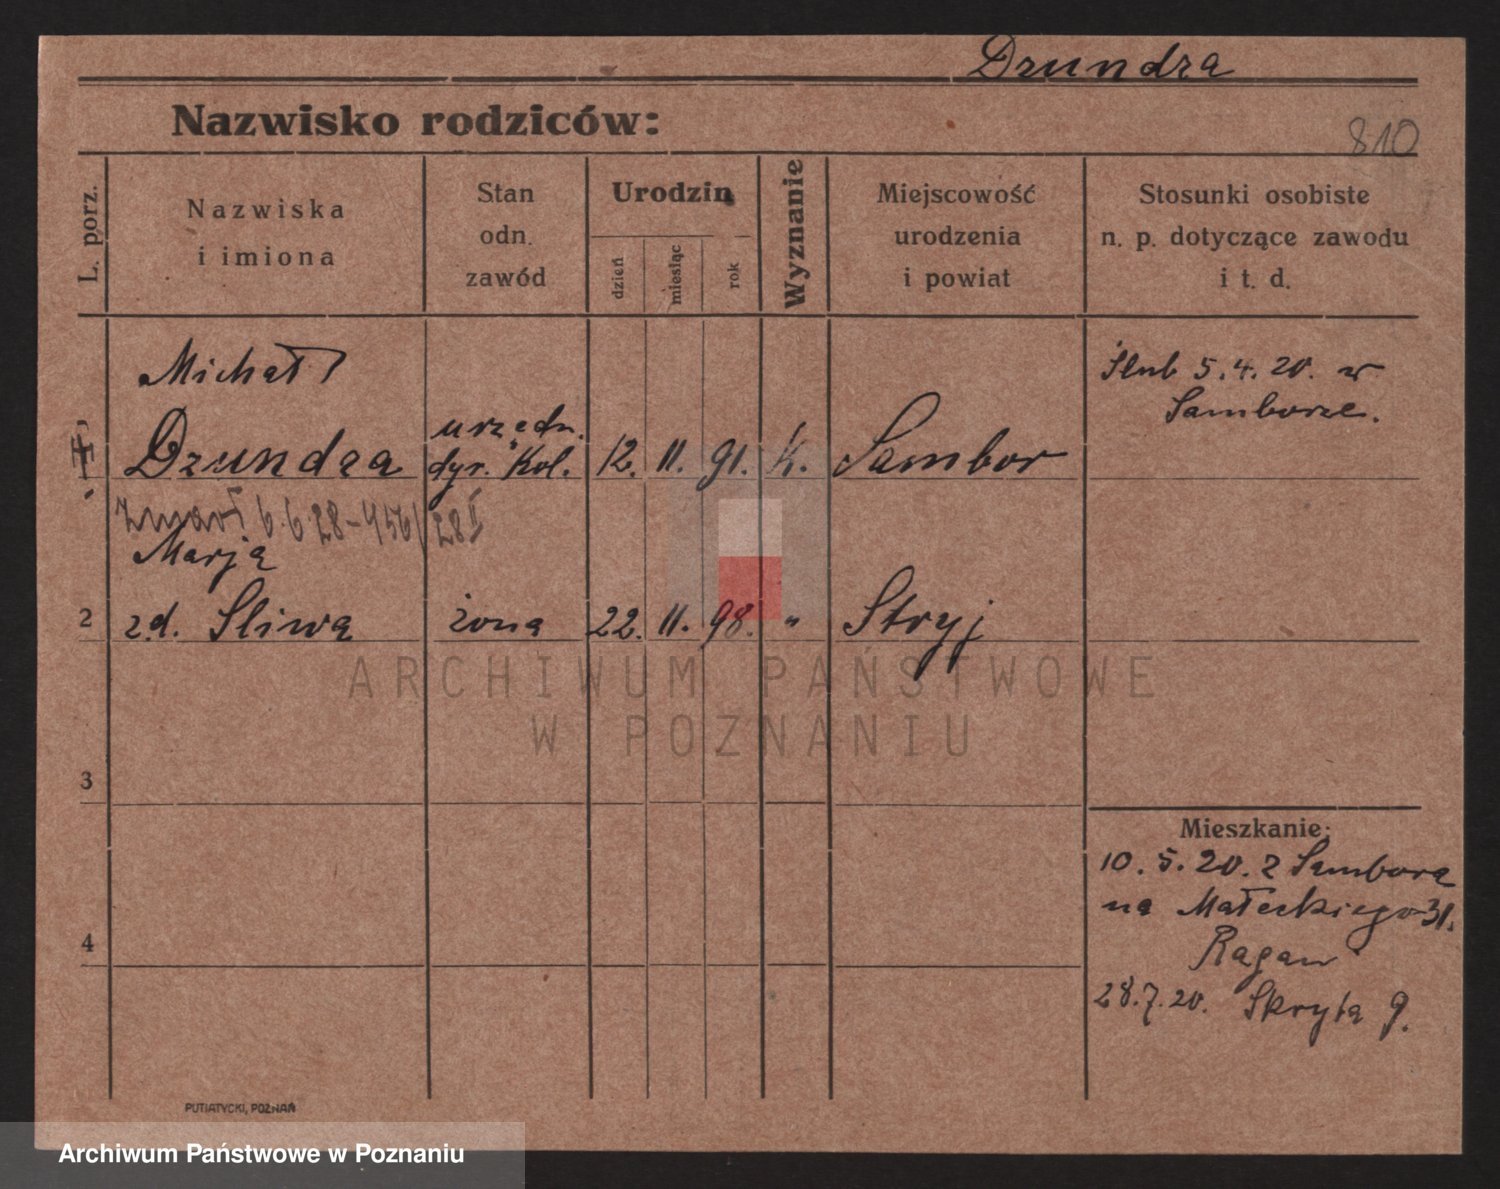 Dzundza
Nazwisko rodziców:
810
L. porz.
Nazwiska
i imiona
Stan
odn.
zawód
Urodzin
dzień
miesiąc
rok
Wyznanie
Miejscowość
urodzenia
i powiat
Stosunki osobiste
n. p. dotyczące zawodu
i t. d.
Michał
Dzundza
urzędn.
dyr. Kol.
12. 11. 91. k. Sambor
Ślub 5.4.20. w
Samborze.
zmarł 6.6.28-456/28 I
Marja
2 z d. Śliwa żona 22. 11. 98. " Stryj
3
4
Mieszkanie:
10.5.20. z Sambora
na Małeckiego 31.
Ragan
28.7.20. Skryta 9.
PUTIATYCKI, POZNAŃ
ARCHIWUM PAŃSTWOWE
W POZNANIU
Archiwum Państwowe w Poznaniu